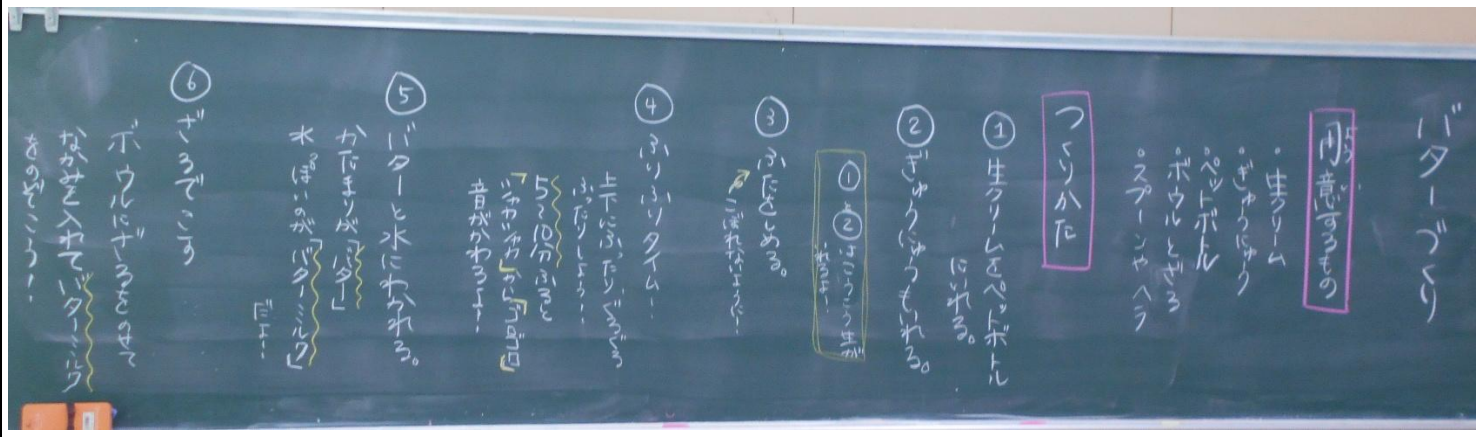 バターづくり
用意するもの
よう い
・生クリーム
・ぎゅうにゅう
・ペットボトル
・ボウルとざる
・スプーンやヘラ
つくりかた
① 生クリームをペットボトル
にいれる。
② ぎゅうにゅうもいれる。
①と②はこうこう生が
いれるよ!
③ ふたをしめる。
こぼれないように!
④ ふりふりタイム!
上下にふったり、ぐるぐる
ふったりしよう!
5〜10分ふると
「シャカシャカ」から「ゴロゴロ」
音がかわるよ!
⑤ バターと水にわかれる。
かたまりが「バター」
水っぽいのが「バターミルク」
だよ!
⑥ ざるでこす
ボウルにざるをのせて
なかみを入れてバターミルク
をのぞこう!